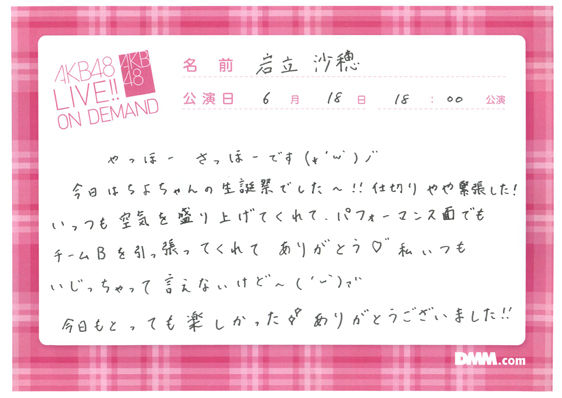 AKB48
LIVE!!
ON DEMAND
AKB
48
名前 岩立 沙穂
公演日 6月 18日 18:00 公演
やっほー さっほーです(*'ω')ノ"
今日はちよちゃんの生誕祭でした〜!!仕切りやや緊張した!
いっつも空気を盛り上げてくれて、パフォーマンス面でも
チームBを引っ張ってくれて ありがとう♡" 私いつも
いじっちゃって言えないけど〜('ー')ﾏ"
今日もとっても楽しかった♪ ありがとうございました!!
DMM.com